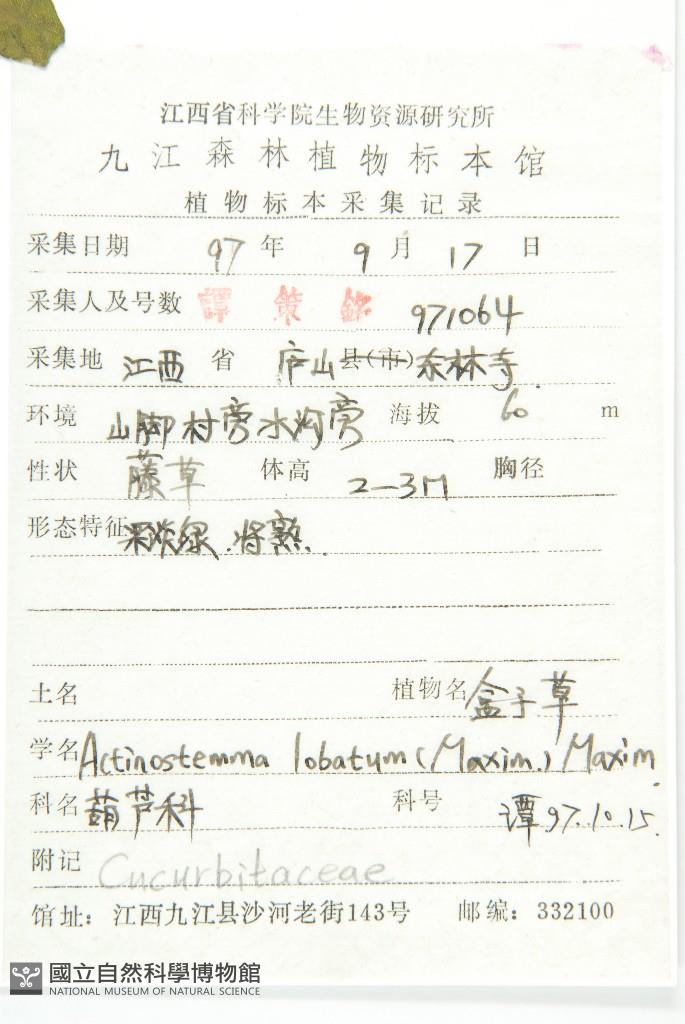 江西省科学院生物资源研究所
九江森林植物标本馆
植物标本采集记录
采集日期 97 年 9 月 17 日
采集人及号数 譚策銘 971064
采集地 江西 省 庐山 县(市) 东林寺.
环境 山脚村旁水沟旁 海拔 60 m
性状 藤草 体高 2-3M 胸径
形态特征 果淡绿.将熟.
土名 植物名 盒子草
学名 Actinostemma lobatum (Maxim.) Maxim.
科名 葫芦科 科号 谭97.10.15.
附记 Cucurbitaceae
馆址：江西九江县沙河老街143号 邮编：332100
國立自然科學博物館
NATIONAL MUSEUM OF NATURAL SCIENCE